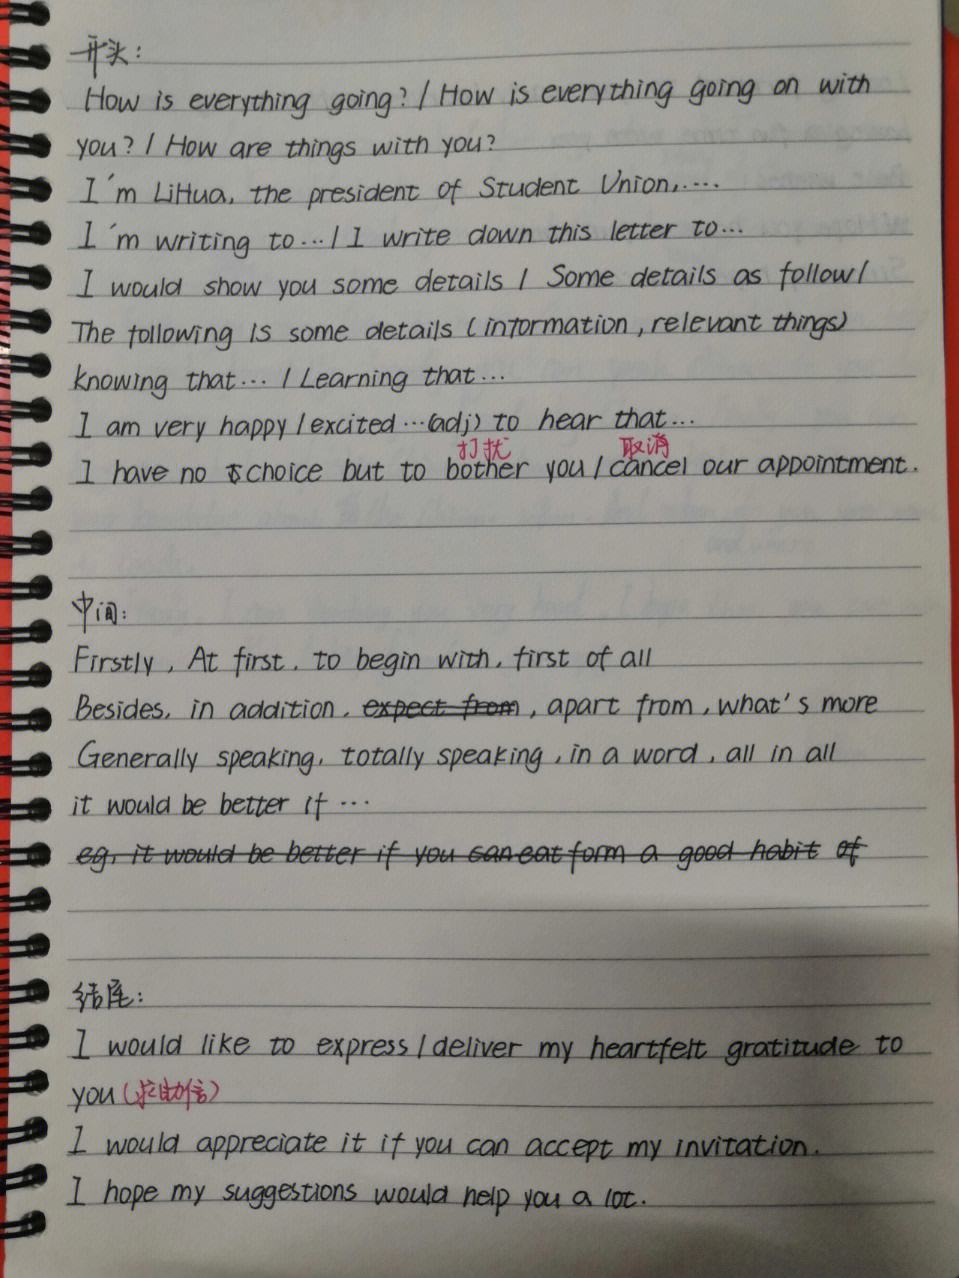 开头:
How is everything going? / How is everything going on with
you? / How are things with you?
I'm LiHua, the president of Student Union, ....
I'm writing to... / I write down this letter to...
I would show you some details / Some details as follow /
The following is some details (information, relevant things)
knowing that... / Learning that...
I am very happy / excited ... (adj) to hear that...
打扰 取消
I have no choice but to bother you / cancel our appointment.
中间:
Firstly, At first, to begin with, first of all
Besides, in addition, expect from, apart from, what's more
Generally speaking, totally speaking, in a word, all in all
it would be better if ...
eg. it would be better if you can eat form a good habit of
结尾:
I would like to express / deliver my heartfelt gratitude to
you (求助信)
I would appreciate it if you can accept my invitation.
I hope my suggestions would help you a lot.